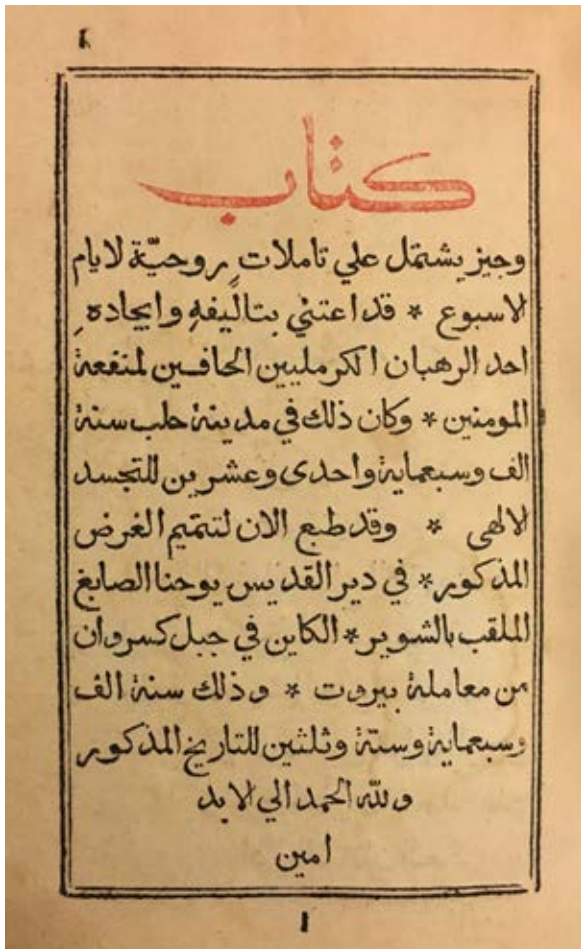 كتاب
وجيز يشتمل علي تاملات روحيّة لايام
الاسبوع * قد اعتني بتاليفهِ وايجادهِ
احد الرهبان الكرمليين الحافيين لمنفعة
المومنين * وكان ذلك في مدينة حلب سنة
الف وسبعماية واحدى وعشرين للتجسد
الالهى * وقد طبع الان لتتميم الغرض
المذكور * في دير القديس يوحنا الصابغ
الملقب بالشوير * الكاين في جبل كسروان
من معاملة بيروت * وذلك سنة الف
وسبعماية وستة وثلثين للتاريخ المذكور
ولله الحمد الي الابد
امين